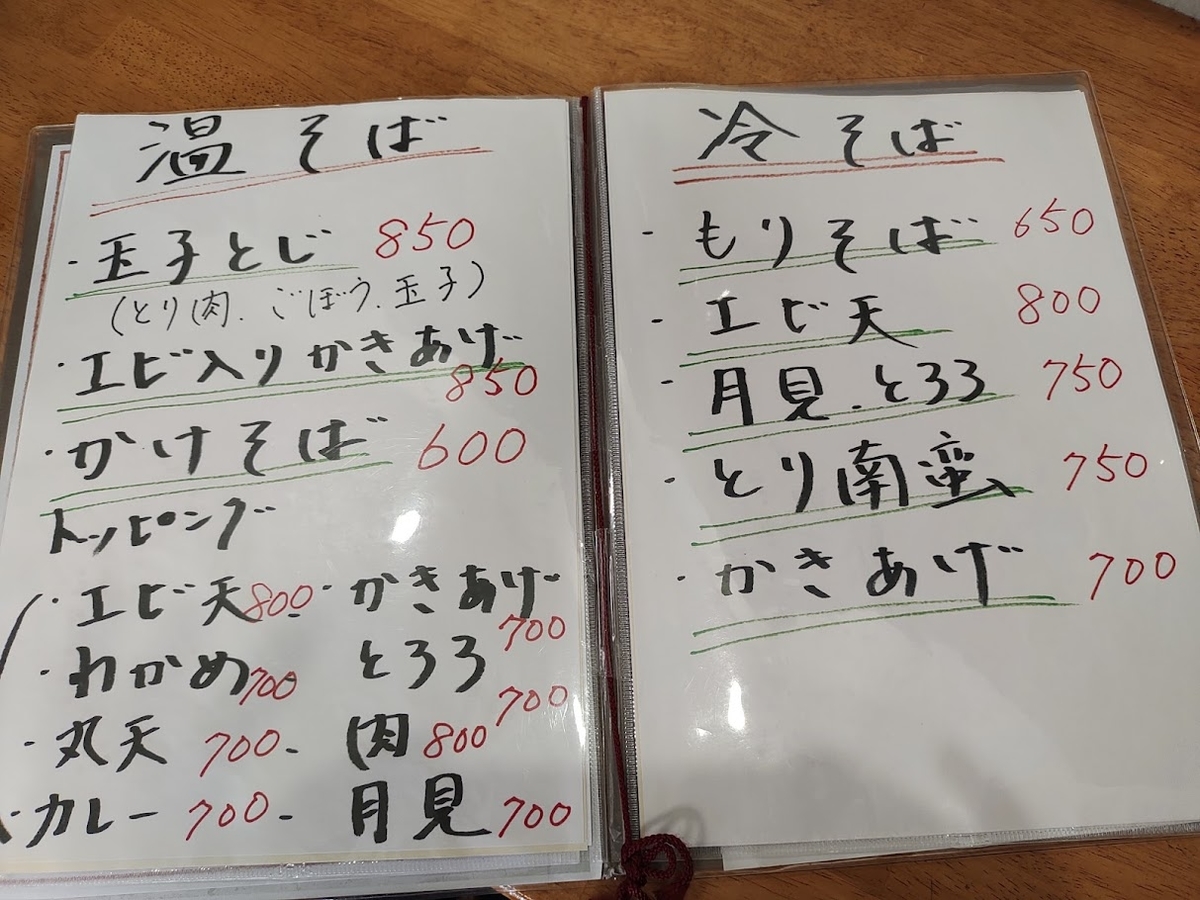 温そば
・玉子とじ 850
(とり肉、ごぼう、玉子)
・エビ入りかきあげ
850
・かけそば 600
トッピング
・エビ天800-
・かきあげ
700
・わかめ700
とろろ
700
・丸天 700-
肉 800
・カレー 700-
月見 700
冷そば
・もりそば 650
・エビ天 800
・月見・とろろ 750
・とり南蛮 750
・かきあげ 700